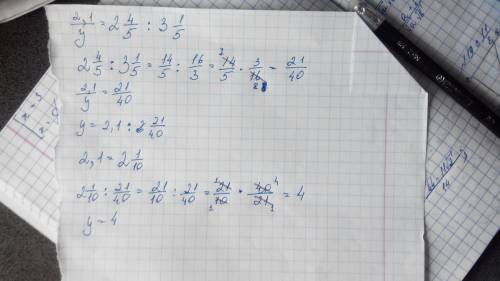 2,1/y = 2 4/5 : 3 1/5
2 4/5 : 3 1/5 = 14/5 : 16/3 = 14/5 · 3/16 = 21/40
2,1/y = 21/40
y = 2,1 : 21/40
2,1 = 2 1/10
2 1/10 : 21/40 = 21/10 : 21/40 = 21/10 * 40/21 = 4
y = 4